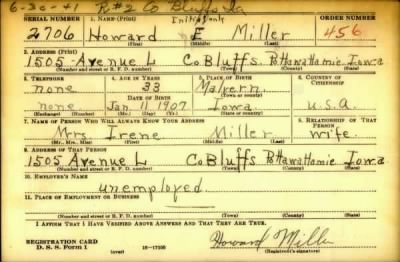 6-30-41 R#2 Co Bluffs Ia
SERIAL NUMBER 1. NAME (Print) Initial only ORDER NUMBER
2706 Howard E Miller 456
(First) (Middle) (Last)
2. ADDRESS (Print)
1505 Avenue L Co Bluffs. Pottawattamie Iowa
(Number and street or R. F. D. number) (Town) (County) (State)
3. TELEPHONE 4. AGE IN YEARS 5. PLACE OF BIRTH 6. COUNTRY OF CITIZENSHIP
none 33 Malvern
DATE OF BIRTH (Town or county)
none Jan 11 1907 Iowa U.S.A.
(Exchange) (Number) (Mo.) (Day) (Yr.) (State or country)
7. NAME OF PERSON WHO WILL ALWAYS KNOW YOUR ADDRESS 8. RELATIONSHIP OF THAT PERSON
Mrs Irene Miller wife.
(Mr., Mrs., Miss) (First) (Middle) (Last)
9. ADDRESS OF THAT PERSON
1505 Avenue L Co Bluffs Pottawattamie Iowa
(Number and street or R. F. D. number) (Town) (County) (State)
10. EMPLOYER'S NAME
unemployed.
11. PLACE OF EMPLOYMENT OR BUSINESS
(Number and street or R. F. D. number) (Town) (County) (State)
I AFFIRM THAT I HAVE VERIFIED ABOVE ANSWERS AND THAT THEY ARE TRUE.
REGISTRATION CARD Howard Miller
D. S. S. Form 1 (over) 16-17105 (Registrant's signature)